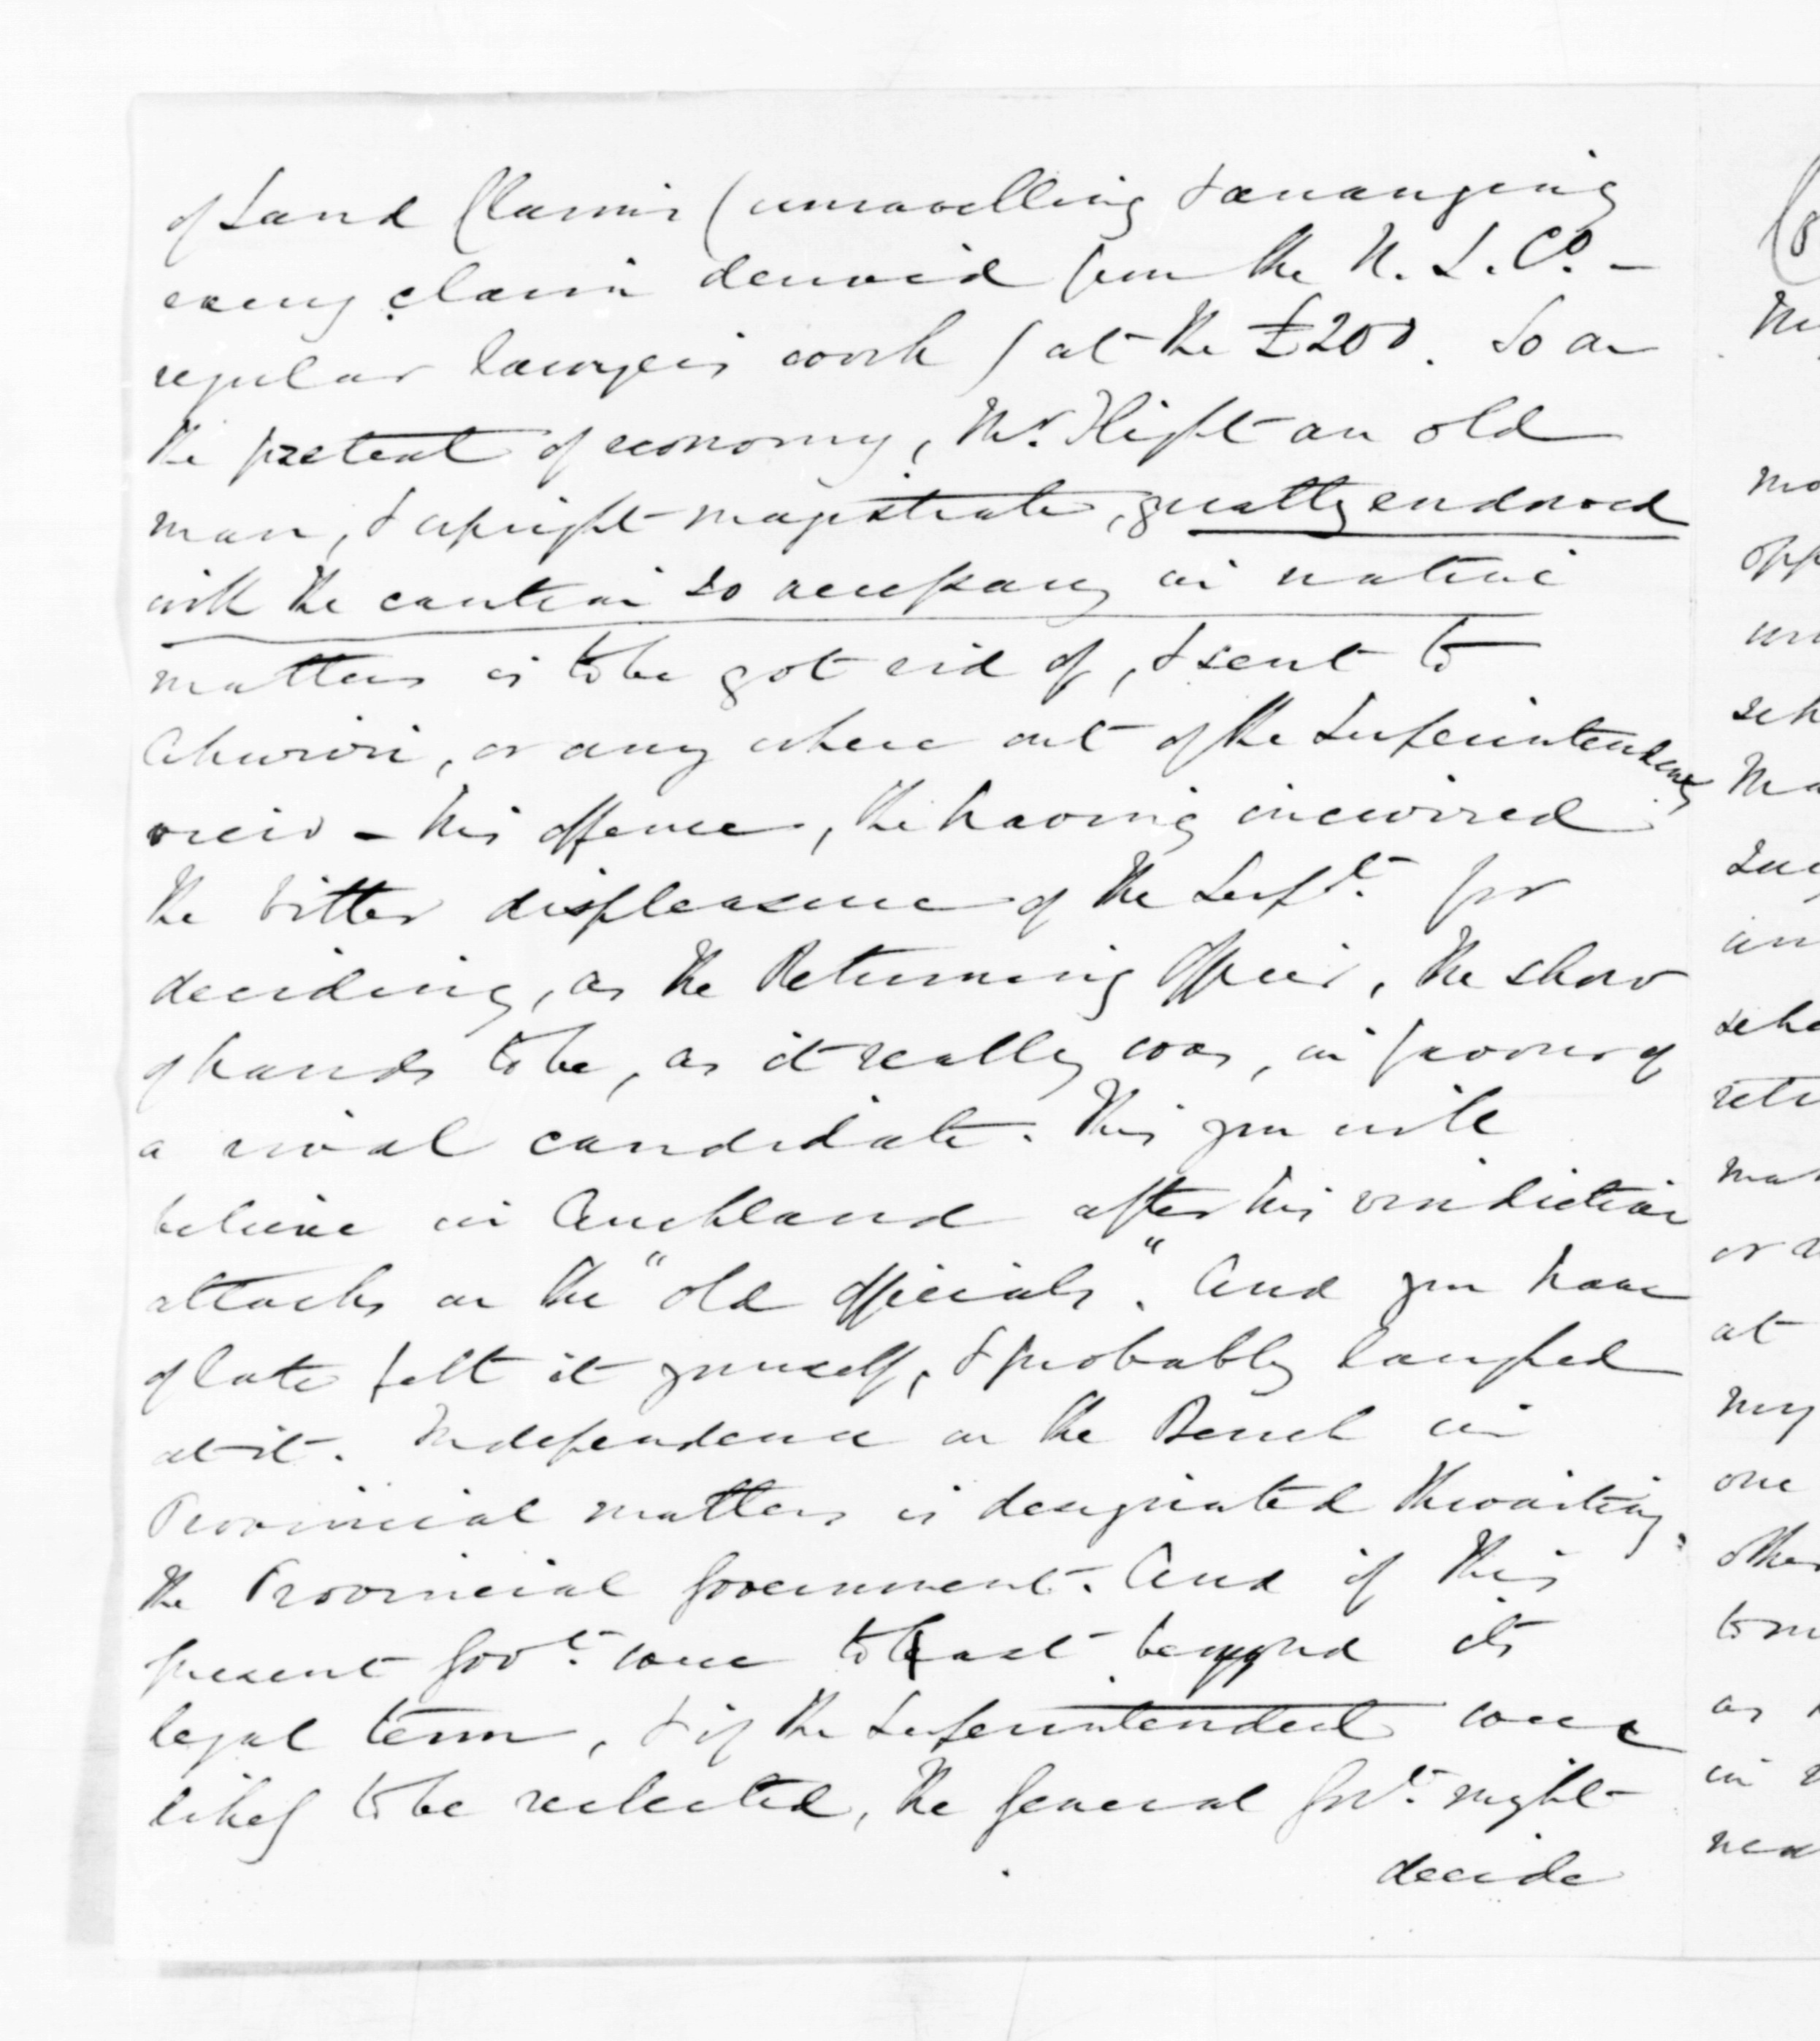 of Land Claims (unravelling & arranging
every claim derived from the N. Z. Co. -
regular lawyers work) at the £200. So on
the pretext of economy, Mr. Flight an old
man, & upright magistrate, greatly endowed
with the caution so necessary in native
matters is to be got rid of, & sent to
Ahuriri, or any where out of the Superintendents
view - his offence, the having incurred
the bitter displeasure of the Supt. for
deciding, as the Returning Officer, the show
of hands to be, as it really was, in favour of
a rival candidate. This you will
believe in Auckland after his vindictive
attacks on the "old officials". And you have
of late felt it yourself, & probably laughed
at it. Independence on the Bench in
Provincial matters is designated thwarting
the Provincial Government. And if this
present Govt. were to last beyond its
legal term, & if the Superintendent were
likely to be reelected, the General Govt. might
decide